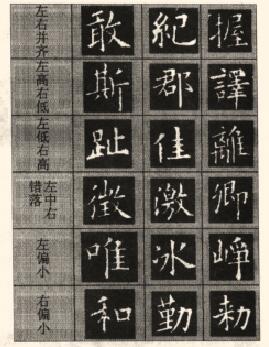 左右并齐 敢 紀 握
左高右低 斯 郡 譯
左低右高 趾 佳 離
左中右错落 徵 激 卿
左偏小 唯 冰 崢
右偏小 和 勤 勑